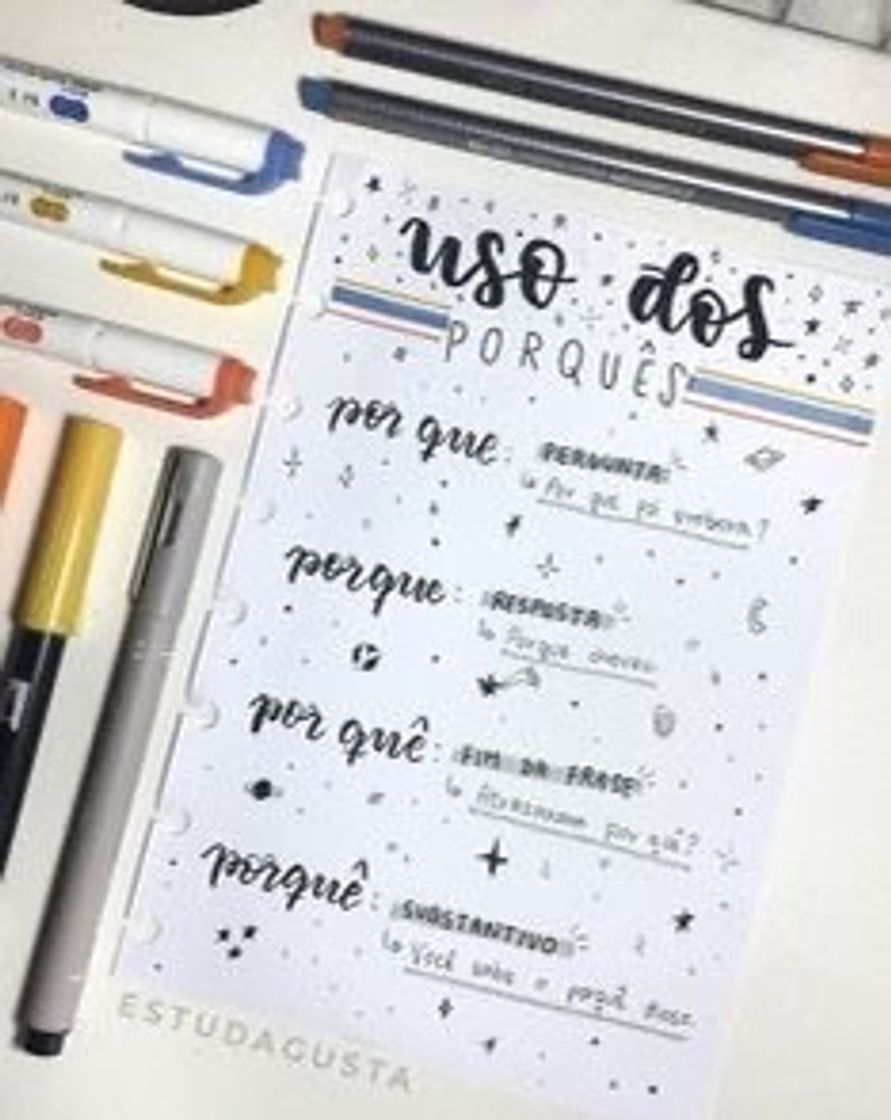 uso dos
PORQUÊS
por que: PERGUNTA
↳ Por que foi embora?
porque: RESPOSTA
↳ Porque choveu
por quê: FIM DA FRASE
↳ Atrasaram por quê?
porquê: SUBSTANTIVO
↳ Você sabe o porquê
ESTUDAGUSTA